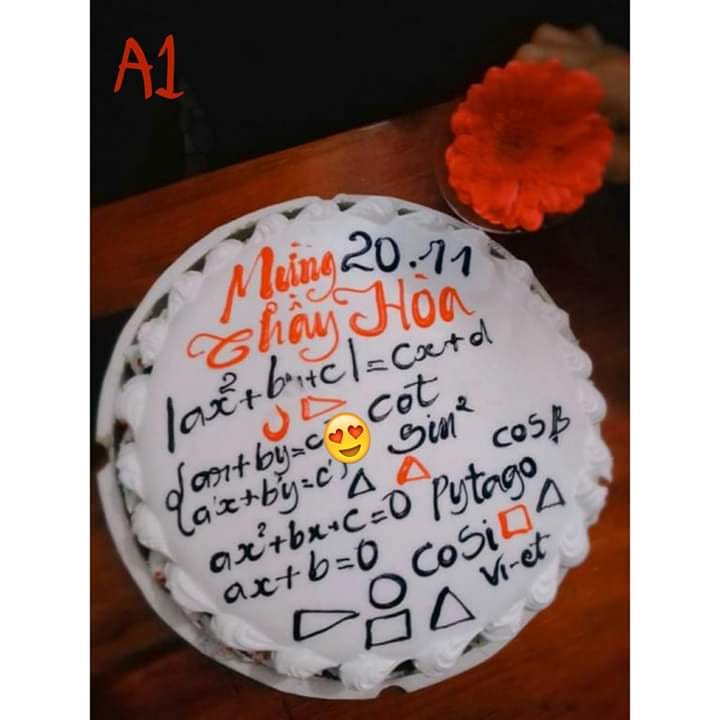 A1
Mừng 20.11
Thầy Hòa
|ax²+bx+c|=cx+d
cot
{ax+by=c
sin²
a'x+b'y=c'
cosβ
ax²+bx+c=0
Pytago
ax+b=0
cosi
Vi-et